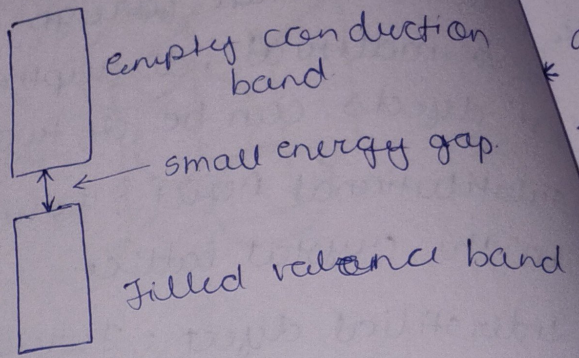 empty conduction
band
small energy gap.
Filled valence band